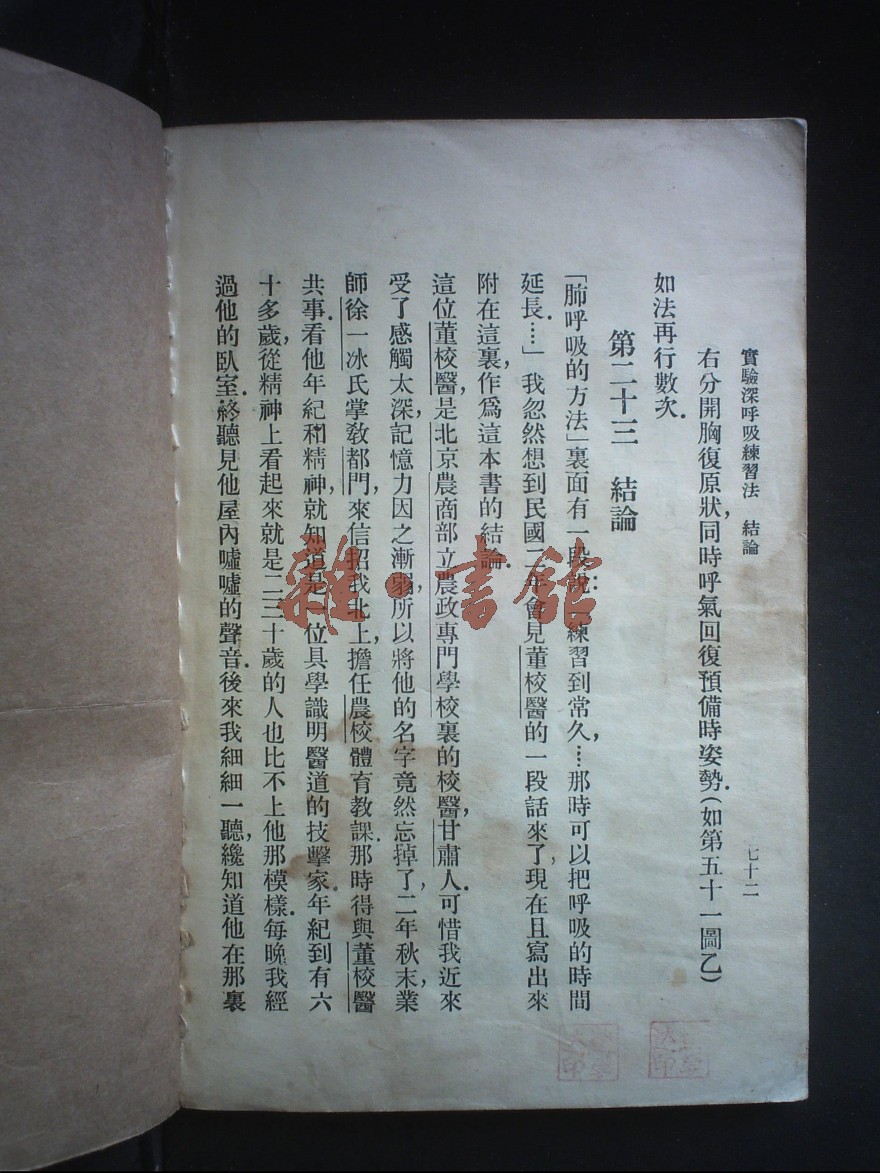 實驗深呼吸練習法 結論 七十二
右分開胸復原狀，同時呼氣回復預備時姿勢．（如第五十一圖乙）
如法再行數次．
第二十三 結論
「肺呼吸的方法」裏面有一段說：「練習到常久，…那時可以把呼吸的時間
延長．…」我忽然想到民國二年會見董校醫的一段話來了，現在且寫出來
附在這裏，作爲這本書的結論．
這位董校醫，是北京農商部立農政專門學校裏的校醫，甘肅人．可惜我近來
受了感觸太深，記憶力因之漸弱，所以將他的名字竟然忘掉了，二年秋末，業
師徐一冰氏掌敎都門，來信招我北上，擔任農校體育教課．那時得與董校醫
共事．看他年紀和精神，就知道是一位具學識明醫道的技擊家．年紀到有六
十多歲，從精神上看起來就是二三十歲的人也比不上他那模樣．每晚我經
過他的臥室．終聽見他屋內噓噓的聲音．後來我細細一聽，纔知道他在那裏
雜·書館